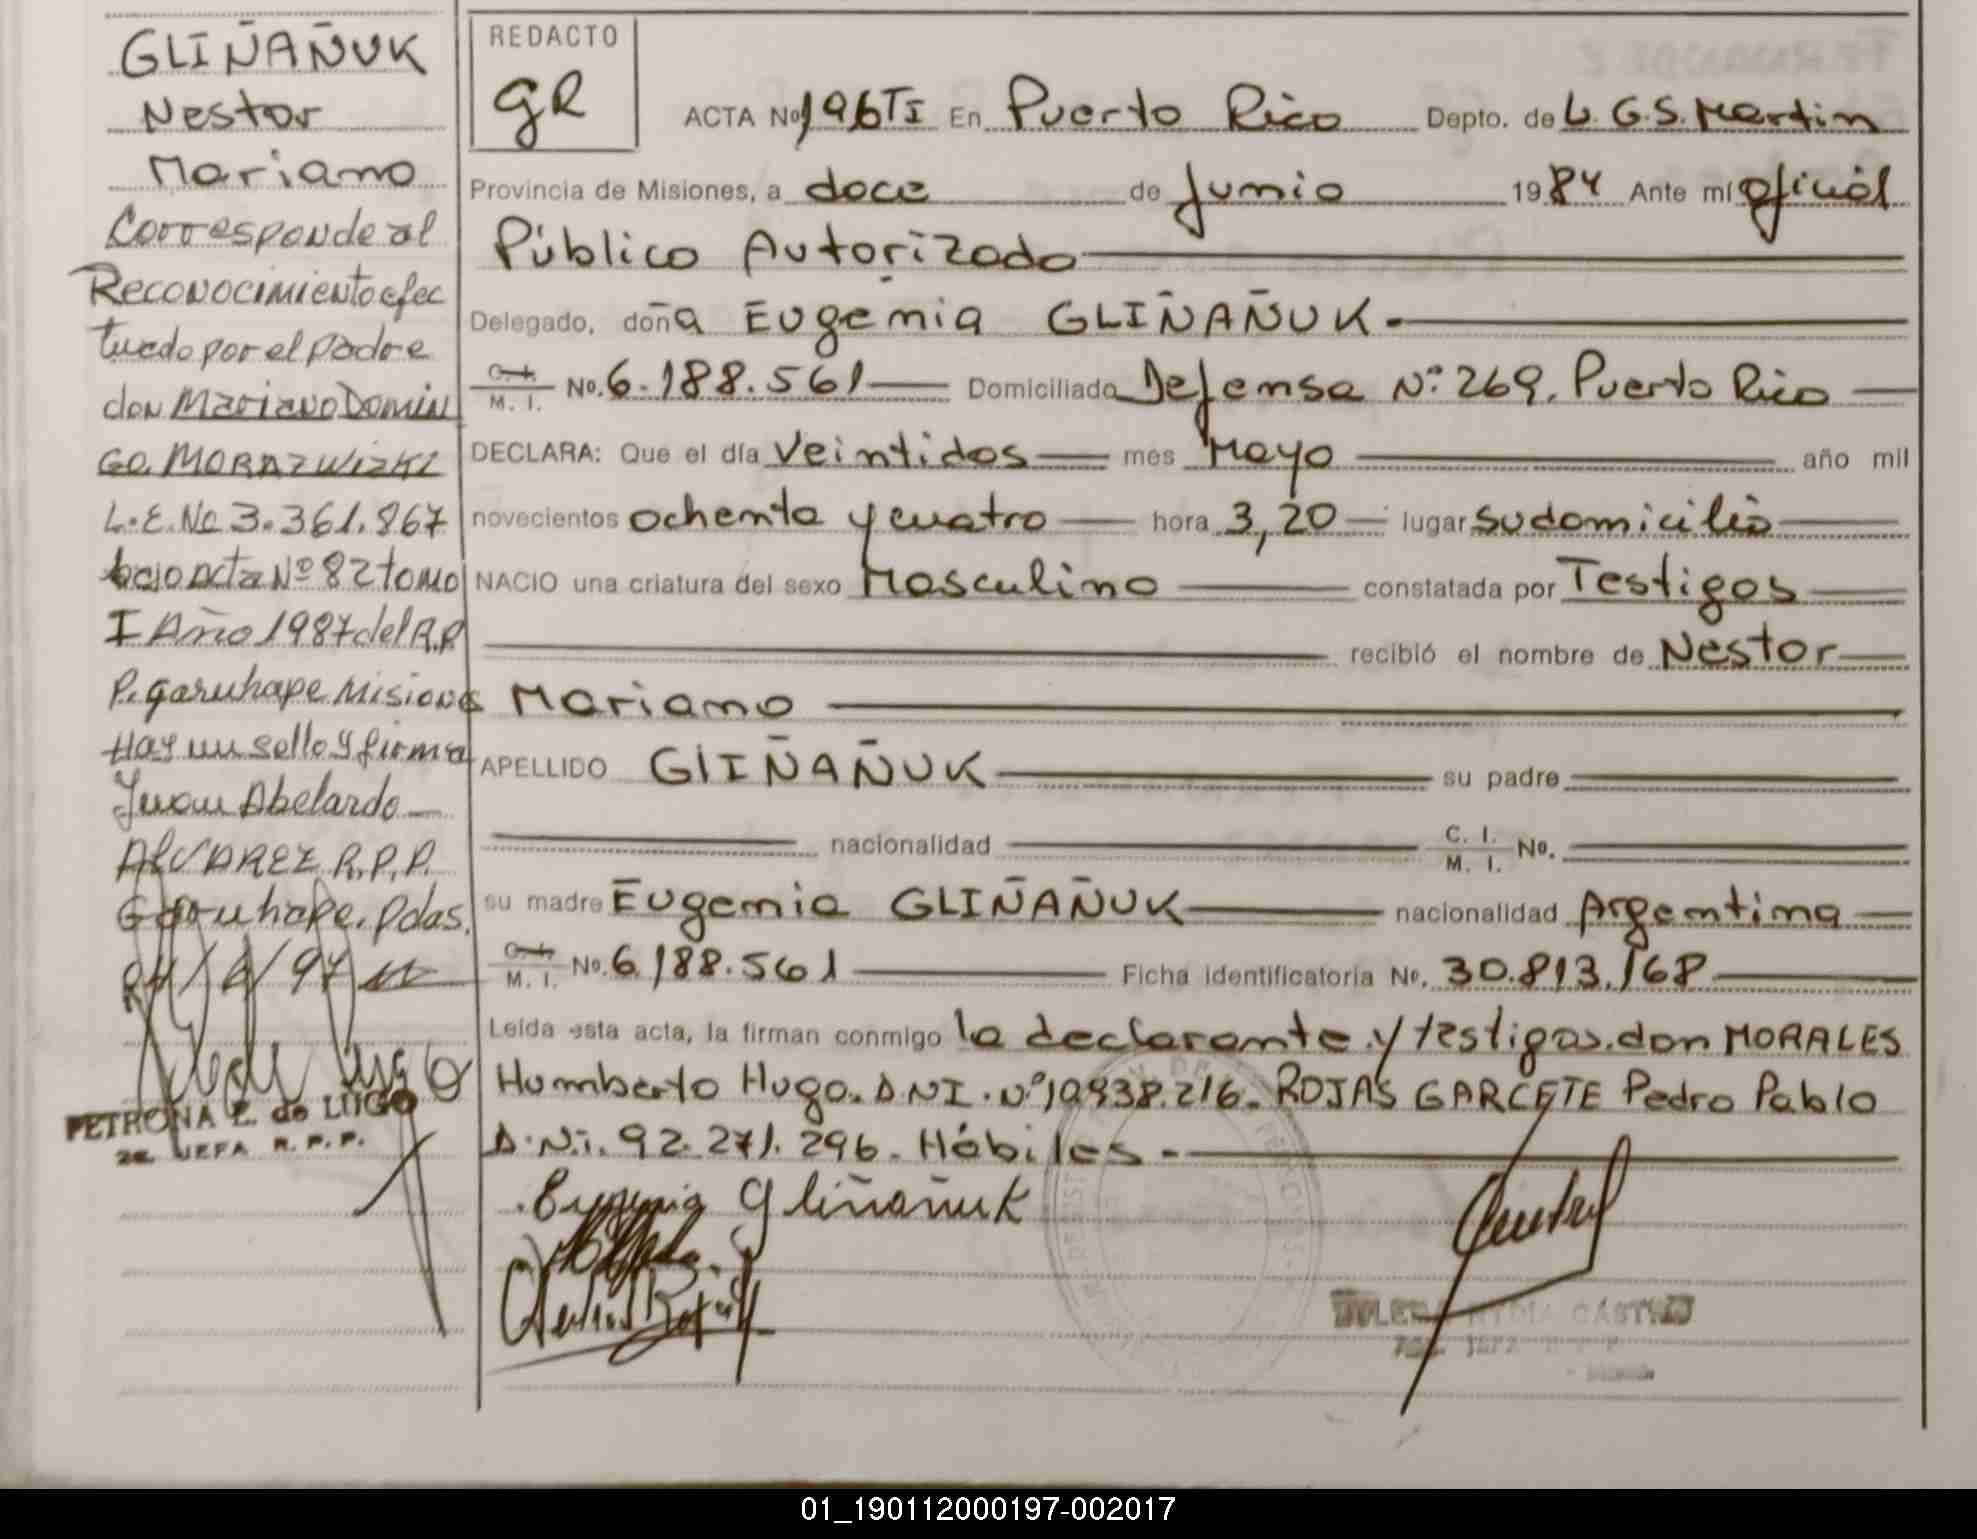 GLIÑAÑUK
Nestor
Mariano
Corresponde al
Reconocimiento efec
tuado por el padre
don Mariano Domin
go MORAZWIZKI
L.E. No 3.361.867
bajo acta Nº 82 tomo
I Año 1987 del R.P
P. Garuhape Misiones
Hay un sello y firma
Juan Abelardo
ALVAREZ R.P.P.
Garuhape. Pdas.
PETRONA E. de LUGO
2a. JEFA R. P. P.
REDACTO
gR
ACTA No 196 TI En Puerto Rico Depto. de L. G. S. Martin
Provincia de Misiones, a doce de Junio 1984 Ante mí oficial
Público Autorizado
Delegado, doña Eugenia GLIÑAÑUK.
C. I. M. I. No. 6.188.561 Domiciliado Defensa Nº 269. Puerto Rico
DECLARA: Que el día Veintidos mes Mayo año mil
novecientos ochenta y cuatro hora 3,20 lugar su domicilio
NACIO una criatura del sexo Masculino constatada por Testigos
recibió el nombre de Nestor
Mariano
APELLIDO GlIÑAÑUK su padre
nacionalidad C. I. M. I. No.
su madre Eugenia GLIÑAÑUK nacionalidad Argentina
C. I. M. I. No. 6.188.561 Ficha identificatoria No. 30.813.168
Leída esta acta, la firman conmigo la declarante y testigos. don MORALES
Humberto Hugo. D.N.I. Nº 10.938.216. ROJAS GARCETE Pedro Pablo
D.N.i. 92.271.296. Hábiles.
Eugenia Gliñañuk
01_190112000197-002017